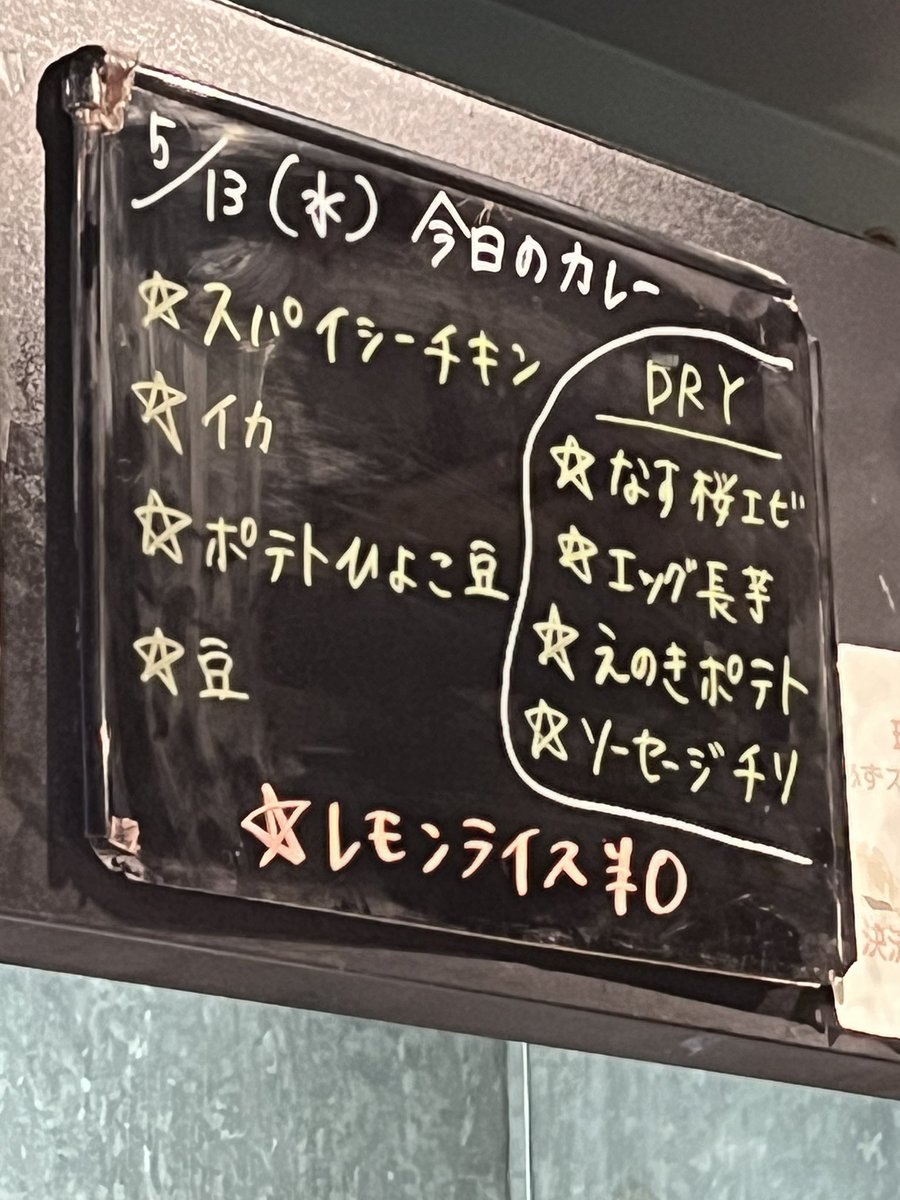 5/13(水) 今日のカレー
☆スパイシーチキン
☆イカ
☆ポテトひよこ豆
☆豆
DRY
☆なす桜エビ
☆エッグ長芋
☆えのきポテト
☆ソーセージチリ
☆レモンライス¥0